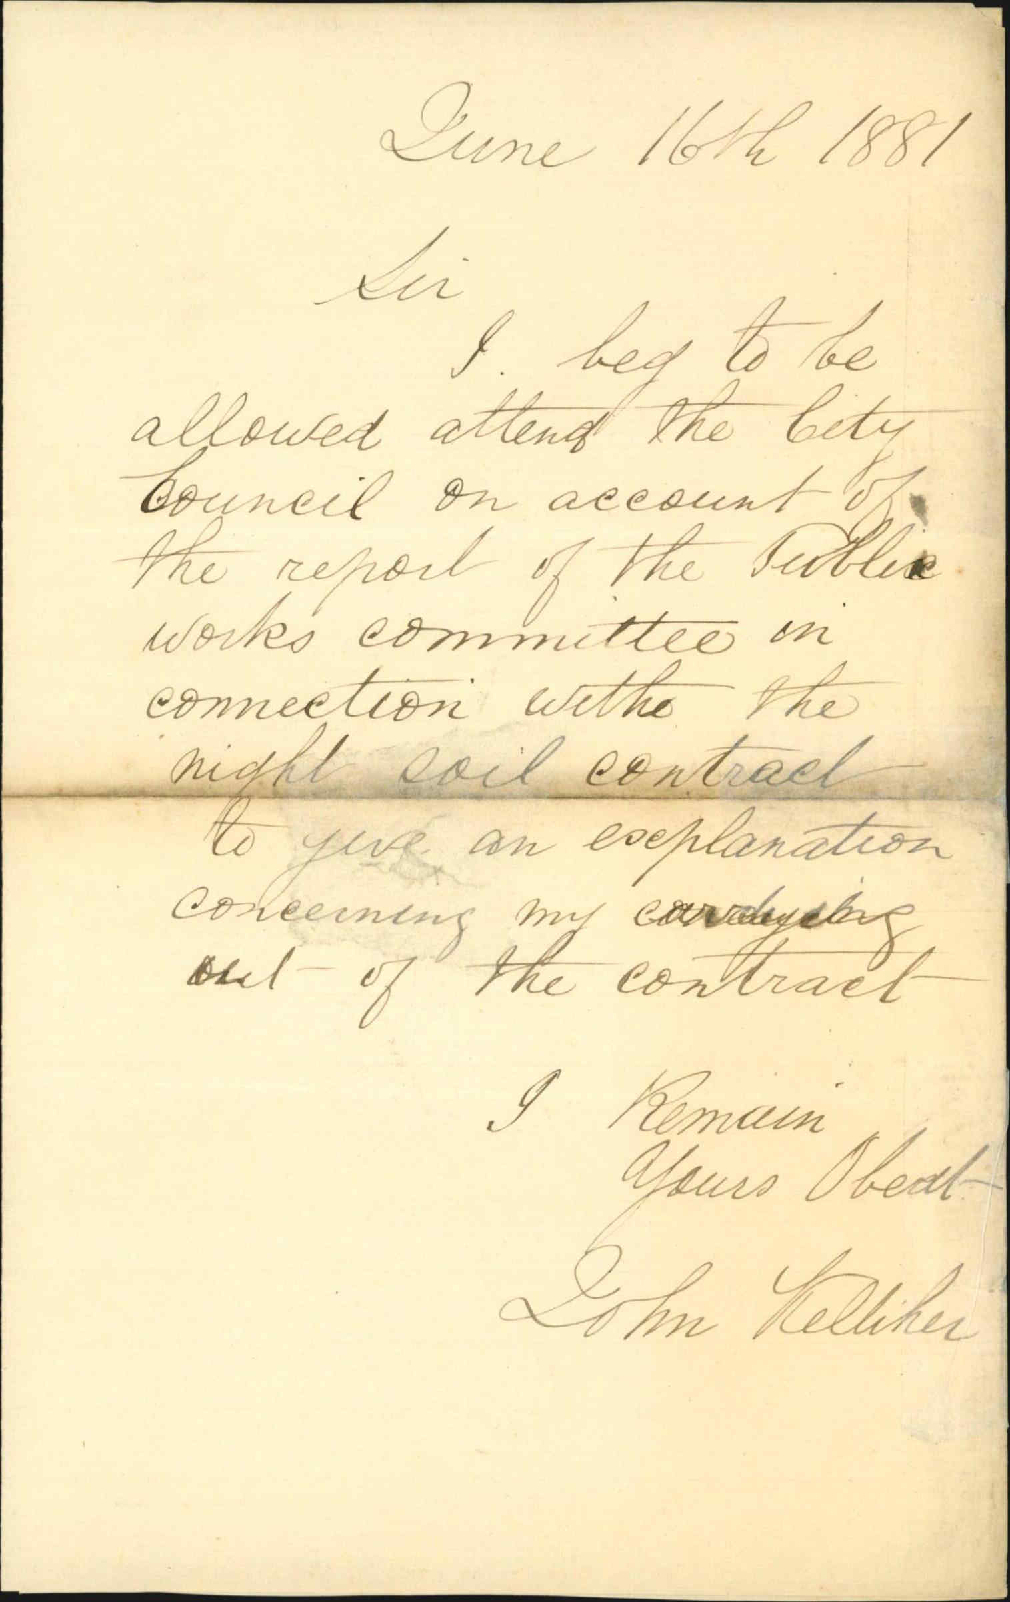 June 16th 1881
Sir
I beg to be
allowed attend the City
Council on account of
the report of the Public
works committee in
connection withe the
night soil contract
to give an explanation
concerning my carrying
out of the contract
I Remain
Yours Obedt
John Kelliher